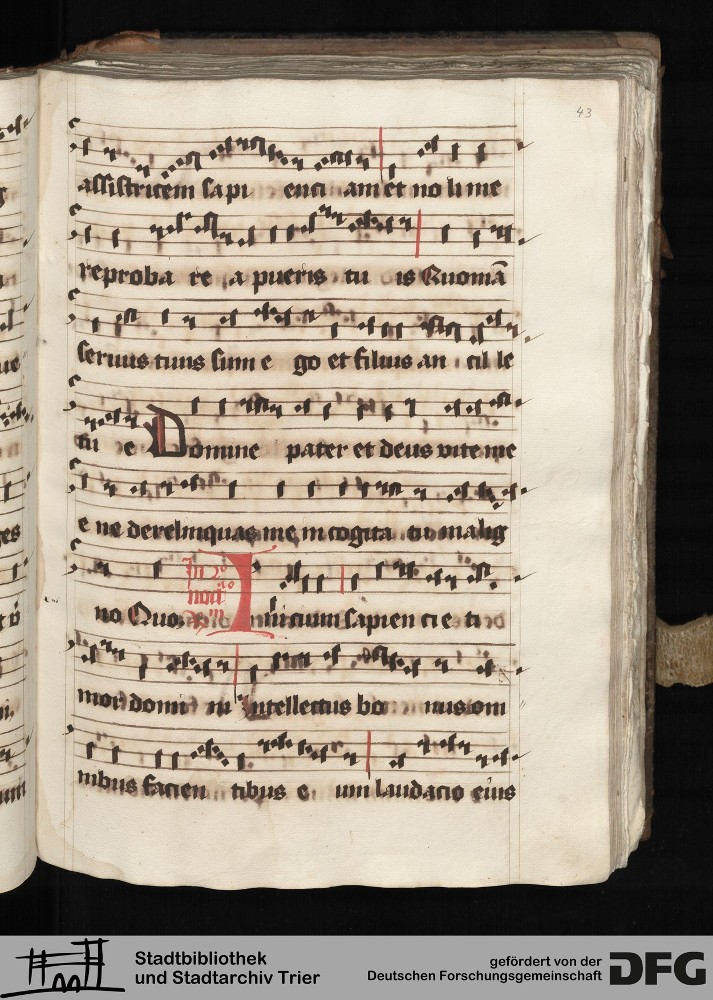 43
assistricem sapi enci am et noli me
reproba re a pueris tu is Quoniā
seruus tuus sum e go et filius an cil le
tu e Domine pater et deus vite me
e ne derelinquas me in cogita tu malig
no Quo Inicium sapien cie ti
mor domi ni Intellectus bo nus om
nibus facien tibus e um laudacio eius
Stadtbibliothek
und Stadtarchiv Trier
gefördert von der
Deutschen Forschungsgemeinschaft
DFG